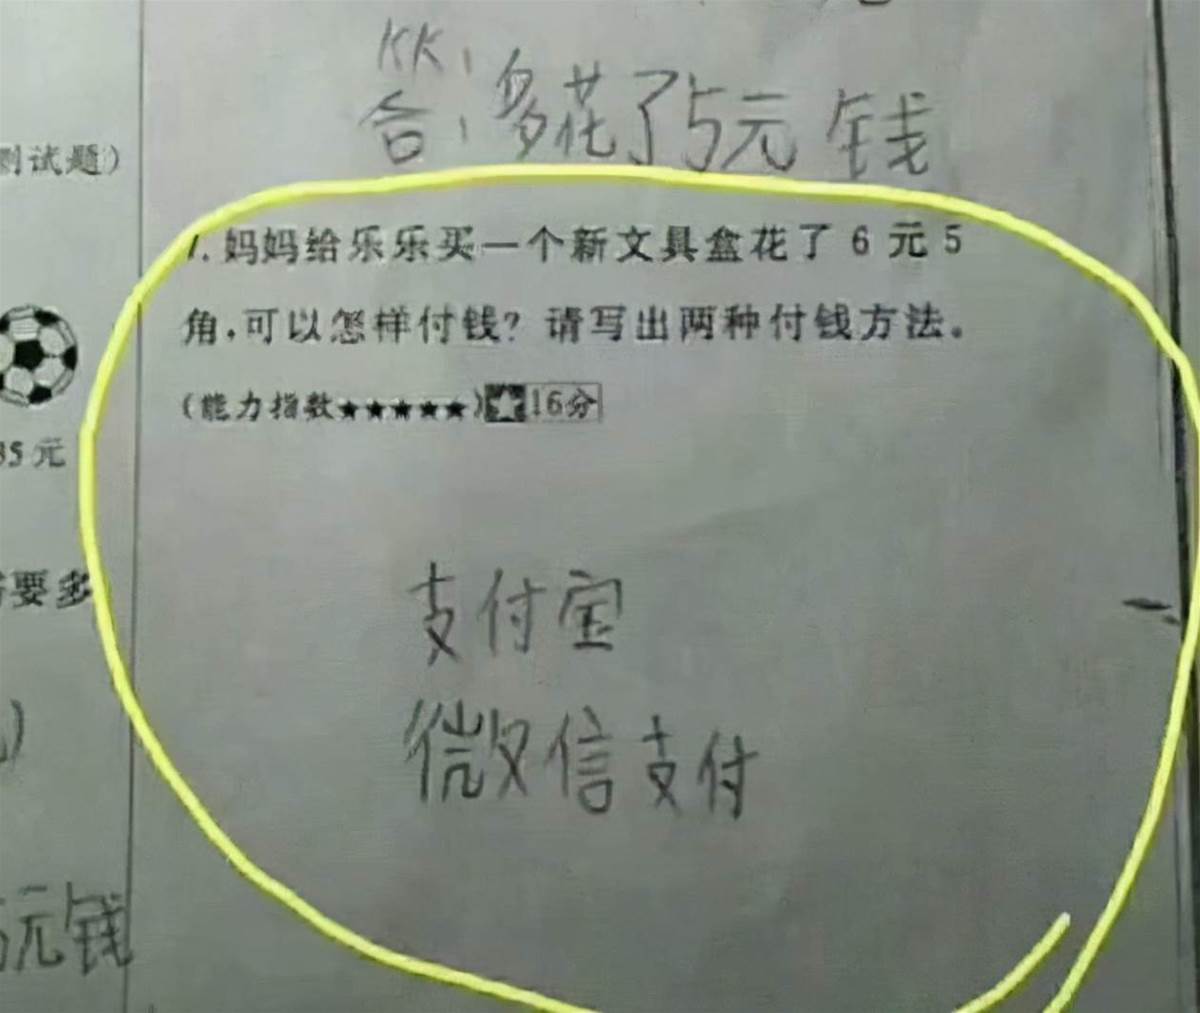 答：多花了5元钱
测试题）
7.妈妈给乐乐买一个新文具盒花了6元5
角,可以怎样付钱？请写出两种付钱方法。
（能力指数★★★★★）16分
35元
要多
支付宝
微信支付
5元钱